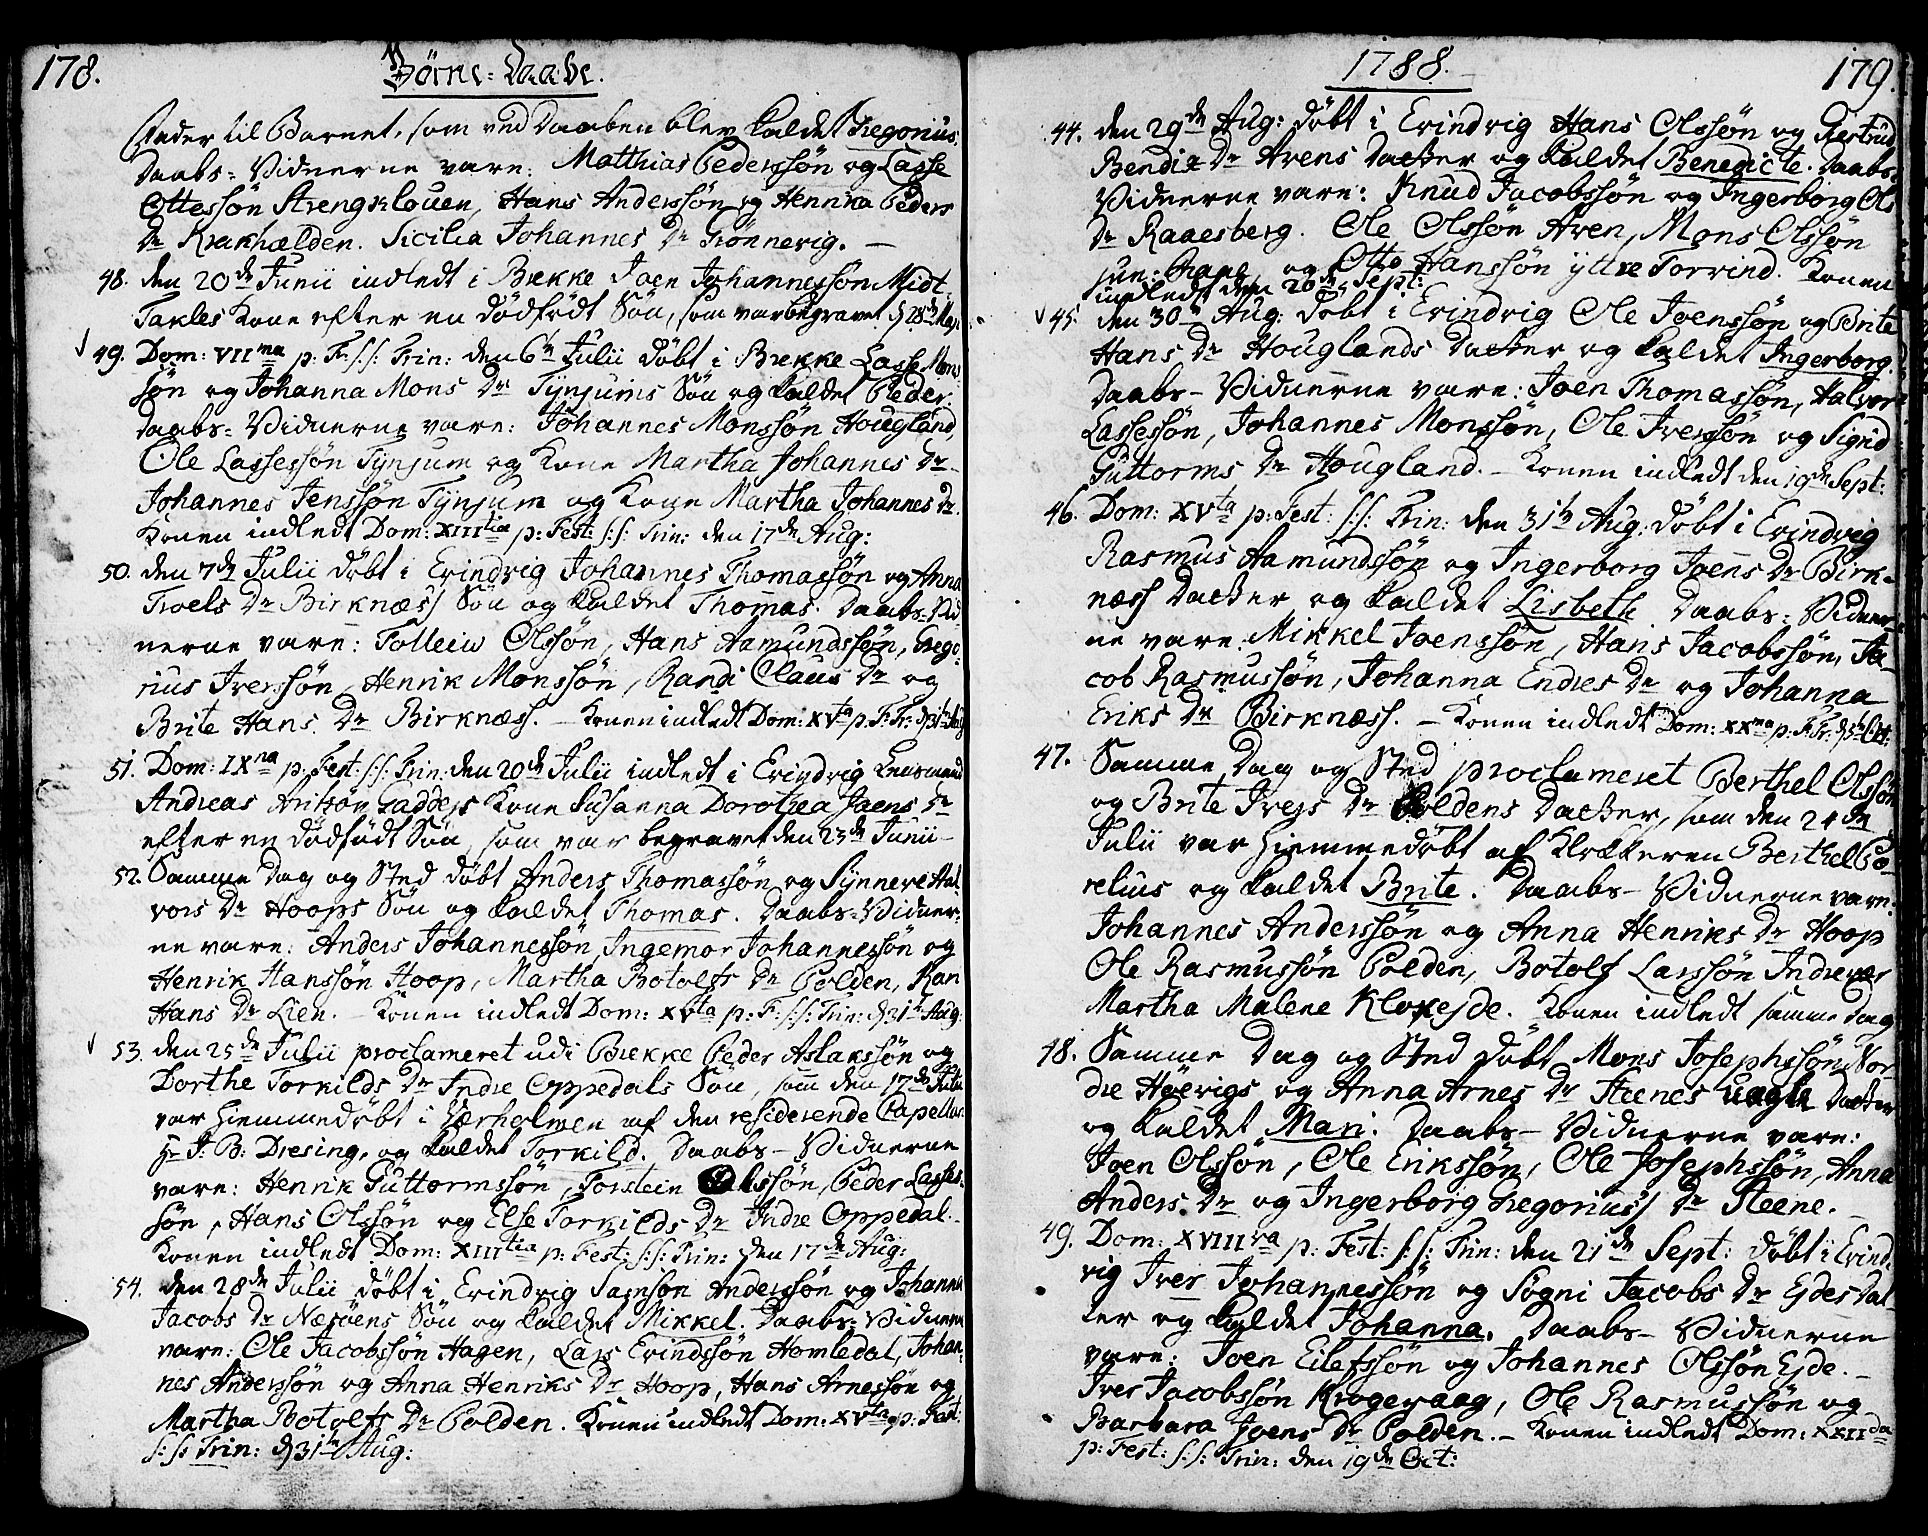 178.
Börne-Daabe.
Fader til Barnet, som ved Daaben blev kaldet Gregorius.
Daabs-Vidnerne vare: Matthias Pederssøn og Lasse
Ottessøn Strengklouen, Hans Anderssøn og Henrica Peders
Dr Krakhælden. Sicilia Johannes Dr Grönnevig. —
48. den 20de Junii indledt i Brekke Joen Johannessøn Midt-
Takles Kone efter en dödfödt Sön, som var begravet d 28de Maj:
49. Dom: VIIma p: F: S:S: Trin: den 6te Julii döbt i Brekke Lasse Mons
søn og Johanna Mons Dr Tÿnjums Sön og kaldet Peder.
Daabs-Vidnerne vare: Johannes Monssøn Hougland,
Ole Lassessøn Tÿnjum og Kone Martha Johannes Dr
Johannes Jenssøn Tÿnjum og Kone Martha Johannes Dr.
Konen indledt Dom: XIIItia p: Fest: S:S: Trin: den 17de Aug:
50. den 7de Julii döbt i Evindvig Johannes Thomassøn og Anna
Troels Dr Birknæss Sön og kaldet Thomas. Daabs-Vid
nerne vare: Tolleiv Olssøn, Hans Aamundssøn, Grego-
rius Iverssøn, Henrik Monssøn, Randi Claus Dr og
Brite Hans Dr Birknæss. — Konen indledt Dom: XVta p: F: Tr: d 31te Aug
51. Dom: IXna p: Fest: S:S: Trin: den 20de Julii indledt i Evindvig Lensmand
Andreas Gadders Kone Susanna Dorothea Jaens Dr
efter en dödfödt Sön, som var begravet den 23de Junii —
52. Samme Dag og Sted döbt Anders Thomassøn og Sÿnneve Hal
vors Dr Hoops Sön og kaldet Thomas. Daabs-Vidner-
ne vare: Anders Johannessøn, Ingemor Johannessøn og
Henrik Hanssøn Hoop, Martha Botolfs Dr Polden, Kari
Hans Dr Lien. — Konen indledt Dom: XVta p: F: S:S: Trin: d 31te Aug:
53. den 25de Julii proclameret udi Brekke Peder Aslakssøn og
Dorthe Torkilds Dr Indre Oppedals Sön, som den 17de Julii
var hiemmedöbt i Værholmen af den residerende Capellan
Hr J: B: Dresing, og kaldet Torkild. Daabs-Vidnerne
vare: Henrik Guttormssøn, Torstein Peder Lasses-
søn, Hans Olssøn og Else Torkilds Dr Indre Oppedal. —
Konen indledt Dom: XIIItia p: Fest: S:S: Trin: den 17de Aug:
54. den 28de Julii döbt i Evindvig Samson Anderssøn og Johanna
Jacobs Dr Næsöens Sön og kaldet Mikkel. Daabs-Vidnerne
vare: Ole Jacobssøn Hagen, Lars Erindssøn Homledal, Johan-
nes Anderssøn og Anna Henriks Dr Hoop, Hans Arnessøn og
Martha Botolfs Dr Polden. Konen indledt Dom: XVta p: Fest:
S:S: Trin: d 31te Aug:
1788.
179.
44. den 29de Aug: döbt i Evindvig Hans Olssøn og Giertrud
Bendix Dr Avens Datter og kaldet Benedicte. Daabs-
Vidnerne vare: Knud Jacobssøn og Ingerborg Ols
Dr Raaesberg. Ole Olssøn Aven, Mons Olssøn
jun: og Otto Hanssøn ÿttre Torvind. Konen
indledt den 20de Sept:
45. den 30te Aug: döbt i Evindvig Ole Joenssøn og Brite
Hans Dr Houglands Datter og kaldet Ingerborg.
Daabs-Vidnerne vare: Joen Thomassøn, Halvor
Lassessøn, Johannes Monssøn, Ole Iverssøn og Sigrid
Guttorms Dr Hougland. — Konen indledt den 19de Sept:
46. Dom: XVta p: Fest: S:S: Trin: den 31te Aug: döbt i Evindvig
Rasmus Aamundssøn og Ingerborg Joens Dr Birk-
næss Datter og kaldet Lisbeth. Daabs-Vidner-
ne vare: Mikkel Joenssøn, Hans Jacobssøn, Ja-
cob Rasmussøn, Johanna Endres Dr og Johanna
Eriks Dr Birknæss. — Konen indledt Dom: XXma p: F: Tr: d 5te Oct:
47. Samme Dag og Sted proclameret Berthel Olssøn
og Brite Ivers Dr Poldens Datter, som den 24de
Julii var hiemmedöbt af Klokkeren Berthel Co
relius og kaldet Brite. Daabs-Vidnerne vare:
Johannes Anderssøn og Anna Henriks Dr Hoop
Ole Rasmussøn Polden, Botolf Larssøn Indrevær
Martha Malene Klovejde. Konen indledt samme Dag
48. Samme Dag og Sted döbt Mons Josephssøn Nor-
dre Höevigs og Anna Arnes Dr Steenes uægte Datter
og kaldet Mari. Daabs-Vidnerne vare:
Joen Olssøn, Ole Erikssøn, Ole Josephssøn, Anna
Anders Dr og Ingerborg Gregorius Dr Steene. —
49. Dom: XVIIIva p: Fest: S:S: Trin: den 21de Sept: döbt i Evind-
vig Iver Johannessøn og Søgni Jacobs Dr Ejdes Dat-
ter og kaldet Johanna. Daabs-Vidnerne
vare: Joen Eilefssøn og Johannes Olssøn Ejde. —
Iver Jacobssøn Krogevaag, Ole Rasmussøn og
Barbara Joens Dr Polden. — Konen indledt Dom: XXIIda
p: Fest: S:S: Trin: den 19de Oct: